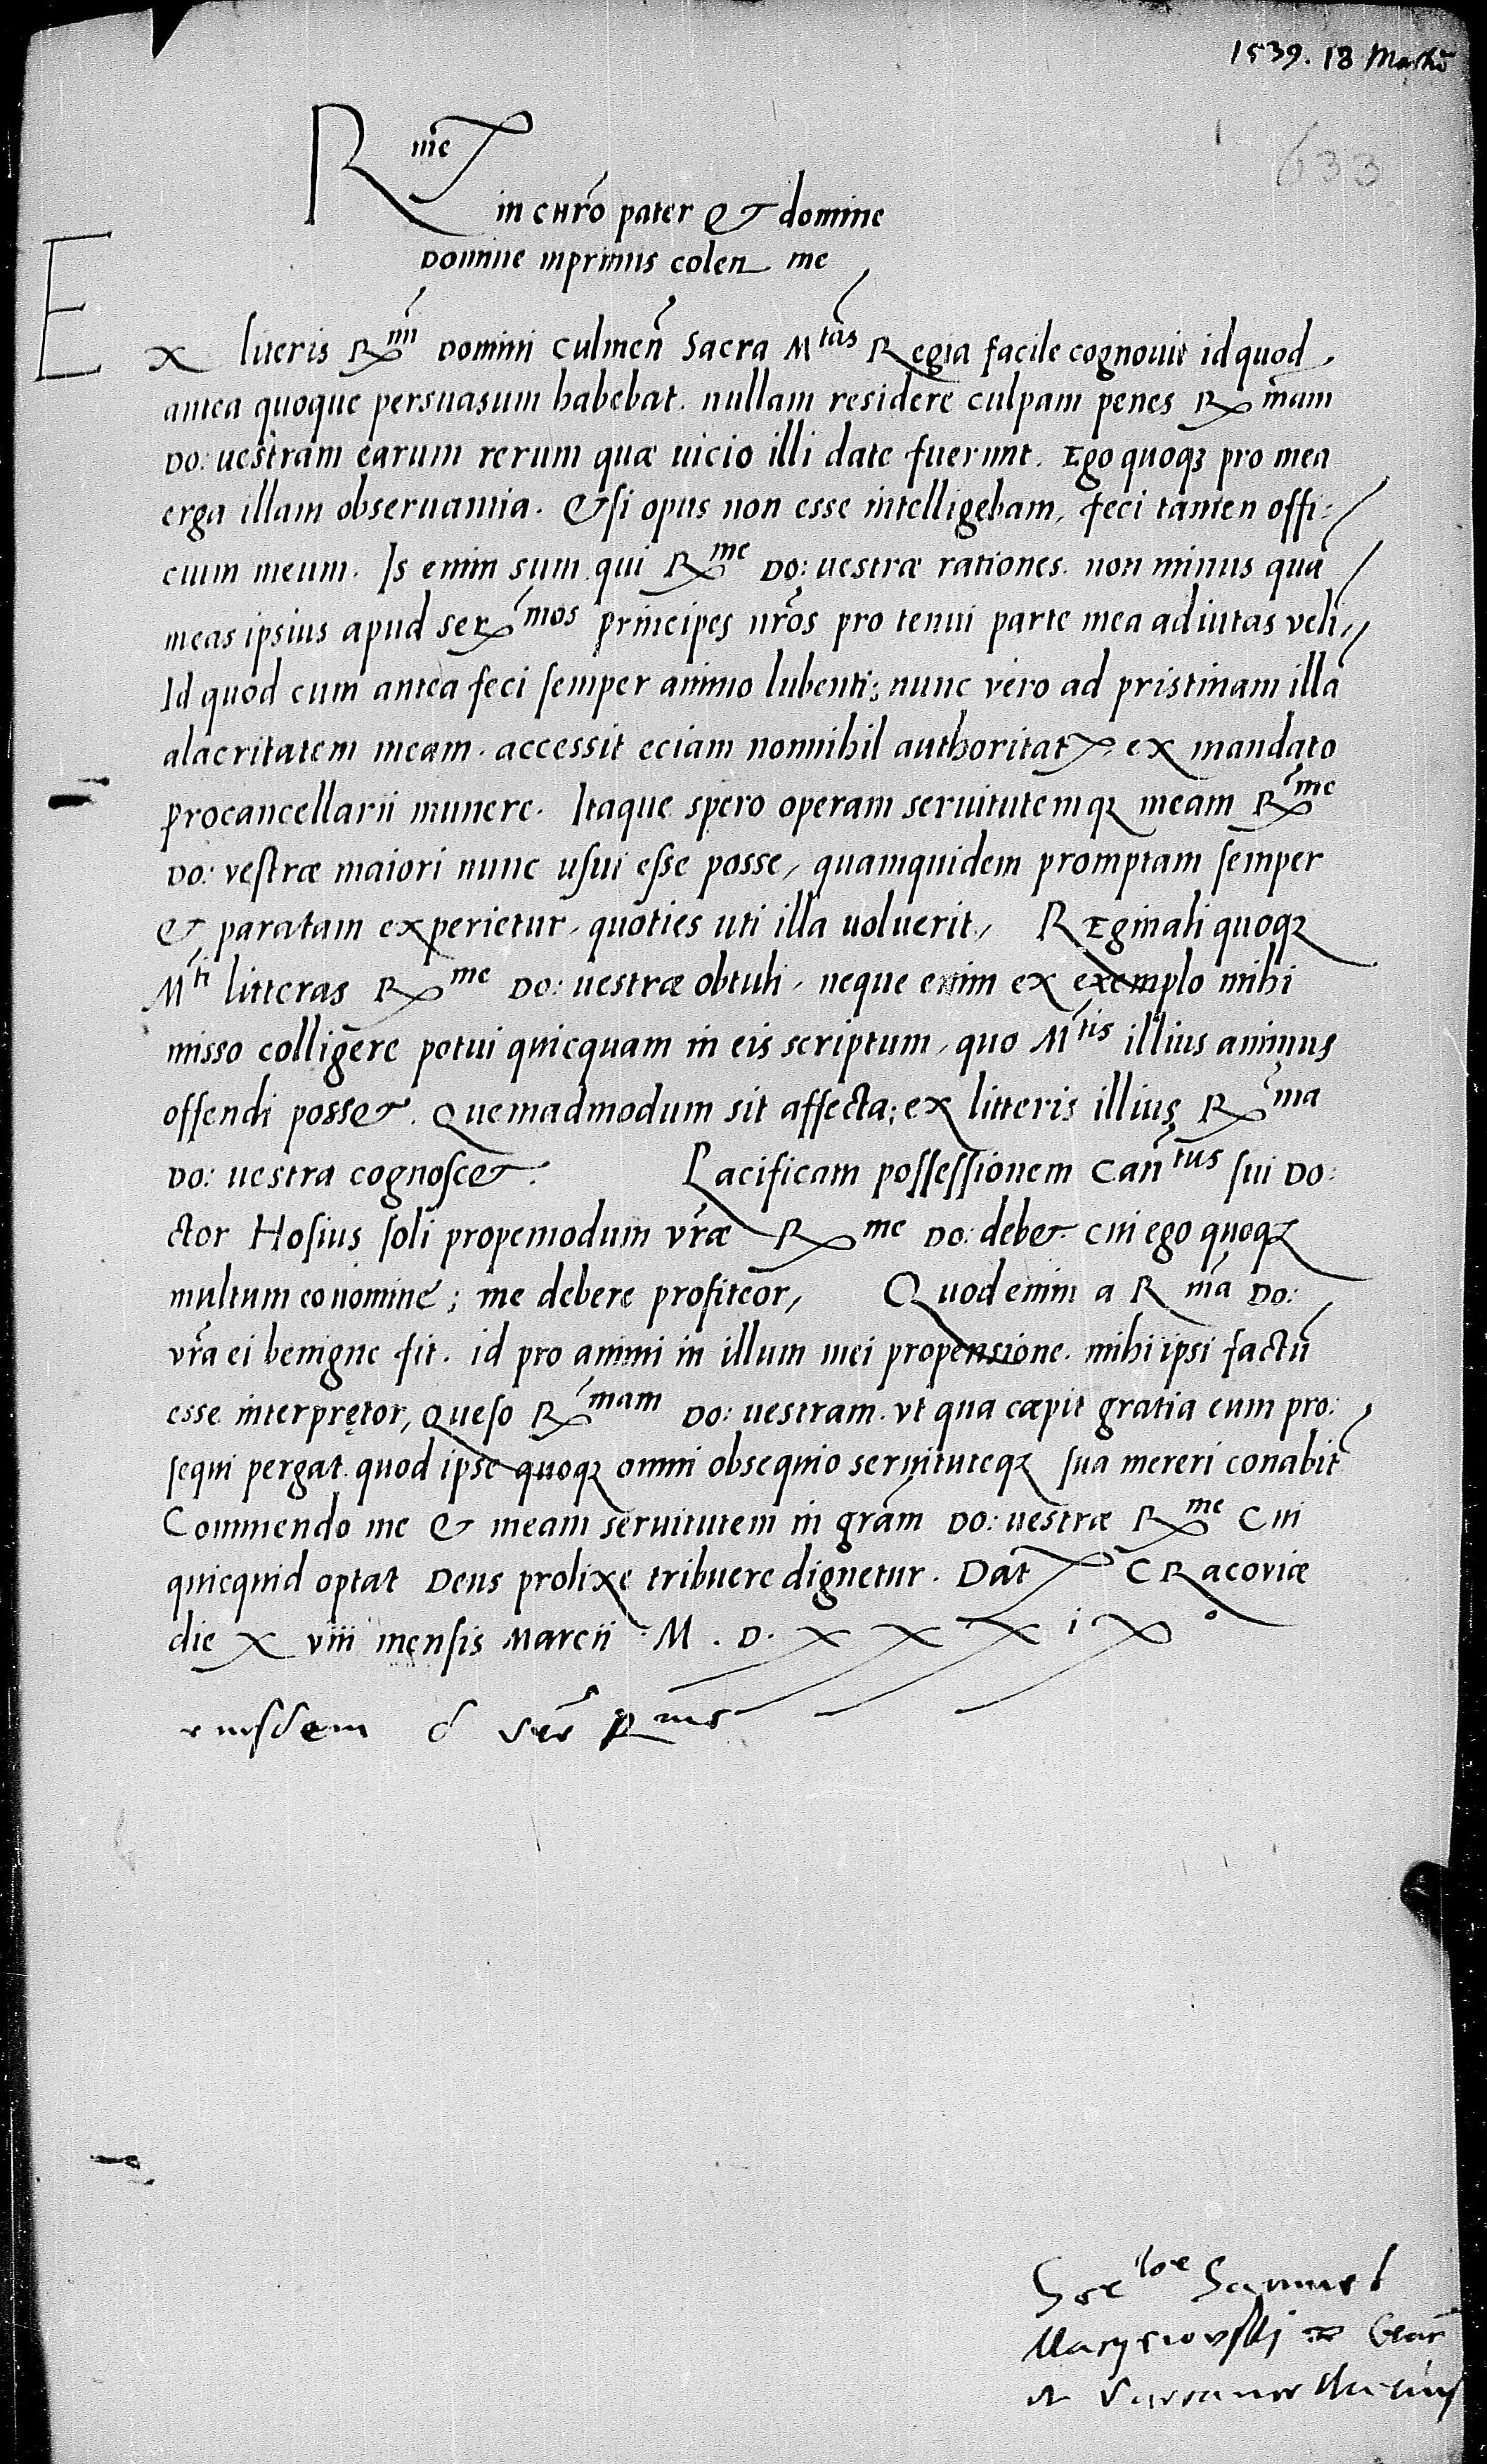 1539. 18
633
R me
in CHRō pater & domine
Domine inprimis colen me
Ex literis Rmi Domini Culmeñ Sacra Mtas Regia facile cognovit id quod
antea quoque persuasum habebat. nullam residere culpam penes R mam
DO: uestram earum rerum quæ uicio illi date fuerunt. Ego quoqꝫ pro mea
erga illam obseruantia. Etsi opus non esse intelligebam, feci tamen offi:
cium meum. Is enim sum qui Rme DO: uestræ rationes. non minus quā
meas ipsius apud ser mos principes nr̄os pro tenui parte mea adiutas veli,,
Id quod cum antea feci semper animo lubenti; nunc vero ad pristinam illā
alacritatem meam. accessit eciam nonnihil authoritat ex mandato
procancellarii munere. Itaque spero operam seruitutemqꝫ meam Rme
DO: vestræ maiori nunc usui esse posse, quamquidem promptam semper
& paratam experietur, quoties uti illa uoluerit, Reginali quoqꝫ
Mti litteras Rme DO: uestræ obtuli, neque enim ex exemplo mihi
misso colligere potui quicquam in eis scriptum, quo Mtis illius animus
offendi posset. Quemadmodum sit affecta; ex litteris illius R ma
DO: uestra cognoscet. Pacificam possessionem Cantus sui Do:
ctor Hosius soli propemodum vr̄æ R me DO: debet. cui ego quoqꝫ
multum eo nomine; me debere profiteor, Quod enim a R mā DO:
vr̄a ei benigne fit. id pro animi in illum mei propensione. mihi ipsi factū
esse interpretor, Queso R mam DO: uestram. vt qua cæpit gratia eum pro:
sequi pergat. quod ipse quoqꝫ omni obsequio seruituteqꝫ sua mereri conabit
Commendo me & meam seruitutem in grām DO: uestræ Rme Cui
quicquid optat Deus prolixe tribuere dignetur. Dat CRacoviæ
die X viii mensis Marcii M. D. X X X i X°
eiusdem d Rme
Samuel